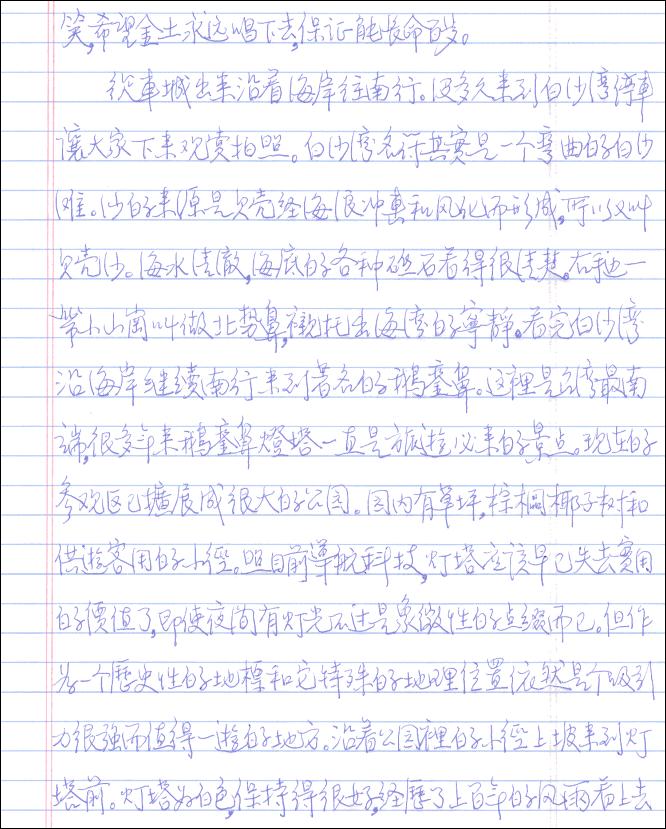 笑,希望金土永远唱下去,保证能长命百岁。
从車城出来沿着海岸往南行。没多久来到白沙湾停車
讓大家下来观赏拍照。白沙湾名符其實是一个弯曲的白沙
滩。沙的来源是贝壳经海浪冲击和风化而形成,所以又叫
贝壳沙。海水清澈,海底的各种礁石看得很清楚。右手边一
带小山崗叫做北势鼻,襯托出海湾的寧靜。看完白沙湾
沿海岸继续南行来到著名的鵝鑾鼻。这裡是台湾最南
端,很多年来鵝鑾鼻燈塔一直是旅遊必来的景点。现在的
参观区已擴展成很大的公园。园内有草坪,棕榈椰子树和
供遊客用的小徑。照目前導航科技,灯塔应该早已失去實用
的價值了,即使夜间有灯光不过是象徵性的点缀而已。但作
为一个歷史性的地標和它特殊的地理位置依然是个吸引
力很強而值得一遊的地方。沿着公园裡的小徑上坡来到灯
塔前。灯塔为白色,保持得很好,经歷了上百年的风雨看上去